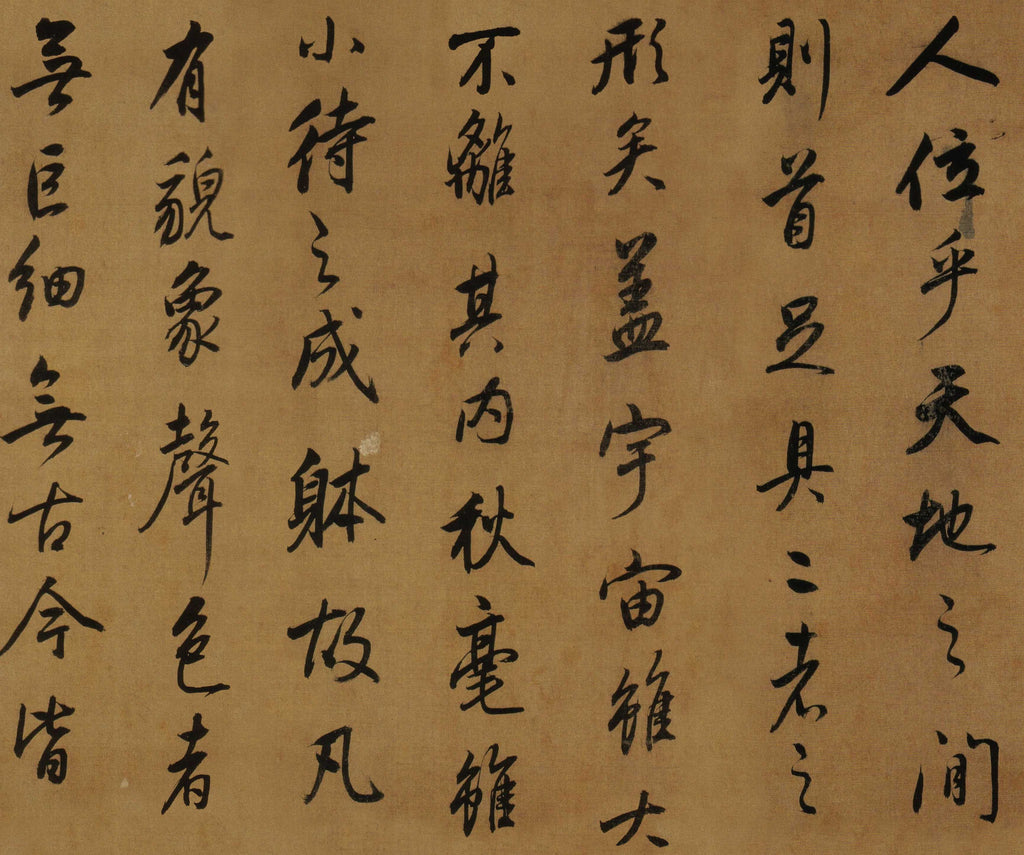 人位乎天地之間
則首足具二者之
形矣蓋宇宙雖大
不離其内秋毫雖
小待之成躰故凡
有貌象聲色者
無巨細無古今皆